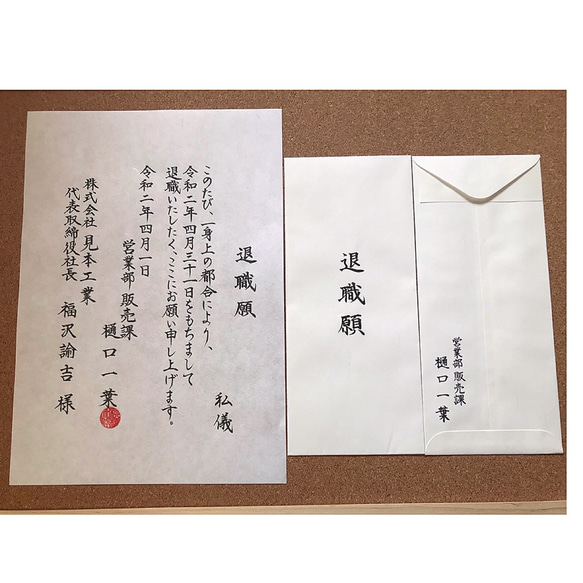 退職願
私儀
このたび、一身上の都合により、
令和二年四月三十一日をもちまして
退職いたしたく、ここにお願い申し上げます。
令和二年四月一日
営業部 販売課
樋口一葉
株式会社 見本工業
代表取締役社長 福沢諭吉 様
退職願
営業部 販売課
樋口一葉